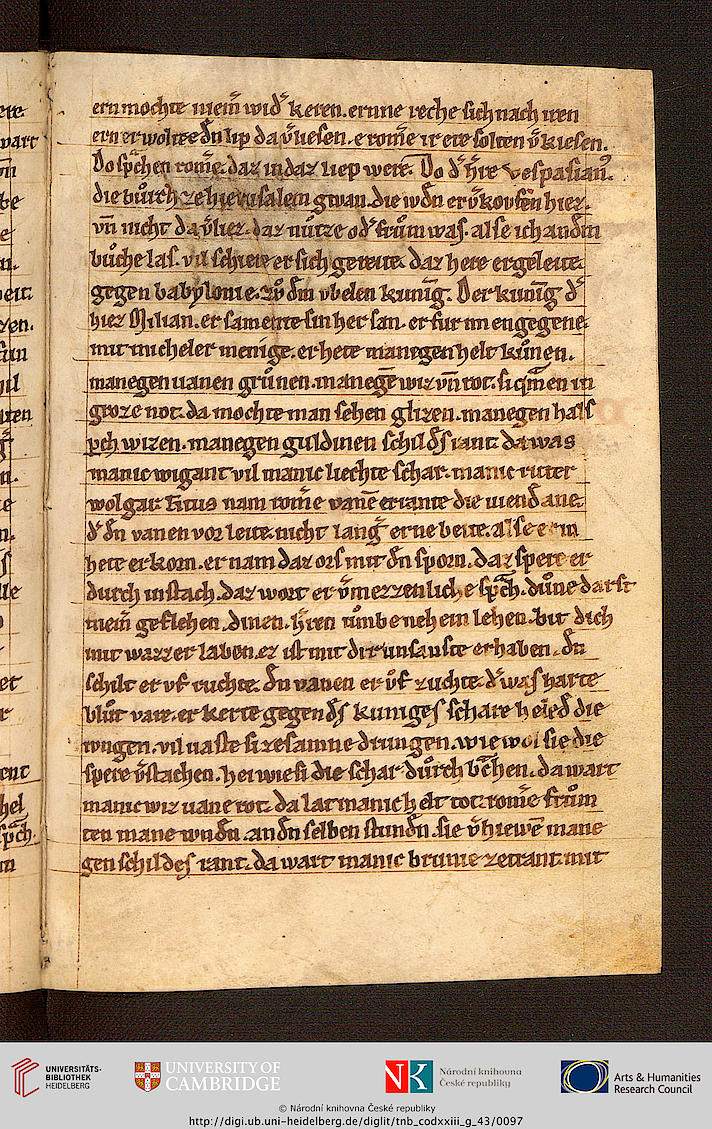 ern mochte niem̄ wid̾ keren. ernne reche sich nach iren
ern er wolte dn̄ lip da v̾liesen. e rom̾e ir ere solten v̾kiesen.
Do sp̾chen rom̾e. daz in daz liep were. Do d̾ h̾re vespasian᷒.
die bůrch ze hierusalem gwan. die wdn̄ er v̾kovfen hiez.
vn̄ nicht da v̾liez. daz nůtze od̾ frům was. alse ich an dm̄
bůche las. vil schiere er sich gereite. daz here er geleite.
gegen babylonie. zů dm̄ vbelen kunīg. Der kunīg d̾
hiez Milian. er samente sin her san. er fur im engegene.
mit micheler menige. er hete manegen helt kůnen.
manegen uanen grůnen. manegē wiz vn̄ rot. si q̄men in
groze not. da mochte man sehen glizen. manegen hals
p̾ch wizen. manegen guldinen schild̾s rant. da was
manic wigant vil manic liechte schar. manic ritter
wolgar. Titus nam rom̾e vanē er rante die viend̾ ane.
d̾ dn̄ vanen vor leite. nicht lang̾ erne beite. alse er in
hete erkorn. er nam daz ors mit dn̄ sporn. daz spere er
durch in stach. daz wort er v̾mezzenliche sp̾ch. důne darft
niem̄ geflehen. dinen. h̾ren ůmbe nehein lehen. bit dich
mit wazzer laben. ez ist mit dir unsanfte erhaben. dn̄
schilt er vf ruchte. dn̄ vanen er vf zuchte. d̾ was harte
blůt vare. er kerte gegen d̾s kuniges schare heied̾ die
iungen. vil uaste si zesamne drungen. wie wol sie die
spere v̾stachen. hei wie si die schar důrch b̾chen. da wart
manic wiz uane rot. da lac manich helt tot. rom̾e frům
ten mane wndn̄. an dn̄ selben stundn̄. sie v̾hiewē mane
gen schildes rant. da wart manic brunie zetrant. mit
UNIVERSITÄTS-
BIBLIOTHEK
HEIDELBERG
UNIVERSITY OF
CAMBRIDGE
NK
Národní knihovna
České republiky
Arts & Humanities
Research Council
© Národní knihovna České republiky
http://digi.ub.uni-heidelberg.de/diglit/tnb_codxxiii_g_43/0097